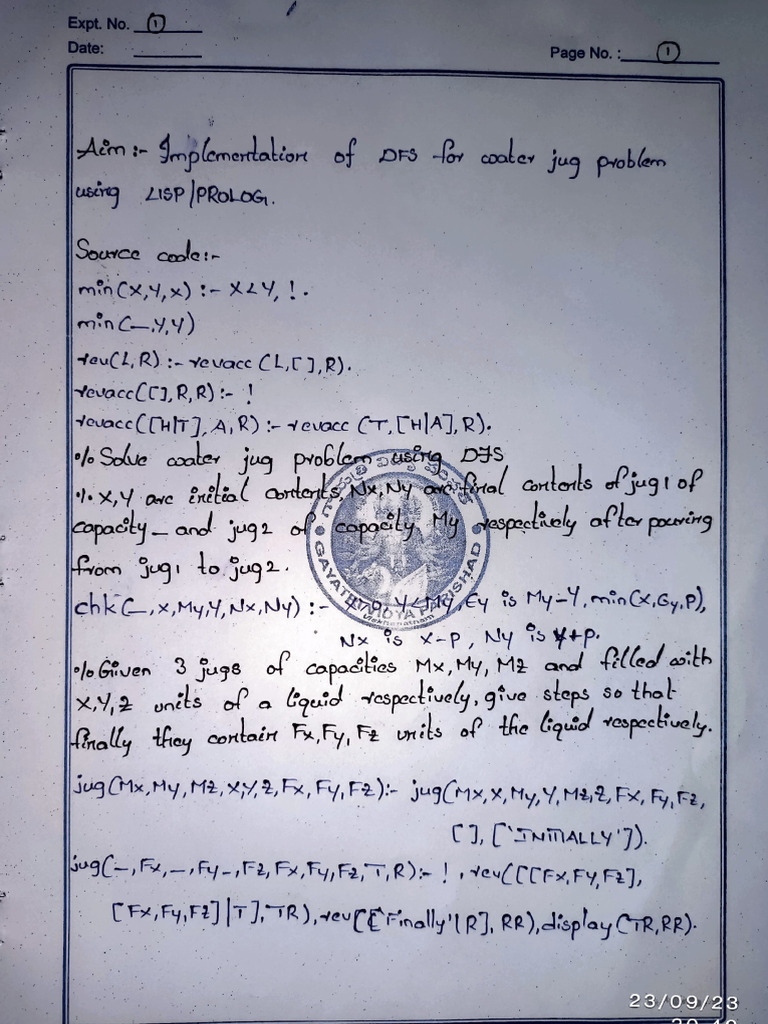 Expt. No. 1
Date:
Page No. : 1
Aim:- Implementation of DFS for water jug problem
using LISP/PROLOG.
Source code:-
min(X,Y,x) :- X<Y, !.
min(_,Y,Y)
rev(L,R) :- revacc(L,[],R).
revacc([],R,R) :- !
revacc([H|T],A,R) :- revacc(T,[H|A],R).
% Solve water jug problem using DFS
% X,Y are initial contents, Nx,Ny are final contents of jug1 of
capacity _ and jug2 of capacity My respectively after pouring
from jug1 to jug2.
chk(_,X,My,Y,Nx,Ny) :- Y<My, Ey is My-Y, min(X,Gy,P),
Nx is X-P, Ny is Y+P.
% Given 3 jugs of capacities Mx,My,MZ and filled with
X,Y,Z units of a liquid respectively, give steps so that
finally they contain Fx,Fy,Fz units of the liquid respectively.
jug(Mx,My,MZ,X,Y,Z,Fx,Fy,Fz):- jug(Mx,X,My,Y,Mz,Z,Fx,Fy,Fz,
[],['INITIALLY']).
jug(_,Fx,_,Fy_,Fz,Fx,Fy,Fz,T,R):- !, rev([[[Fx,Fy,Fz],
[Fx,Fy,Fz]|T],TR), rev([['Finally'|R],RR), display(TR,RR).
GAYATRI VIDYA PARISHAD
Visakhapatnam
23/09/23